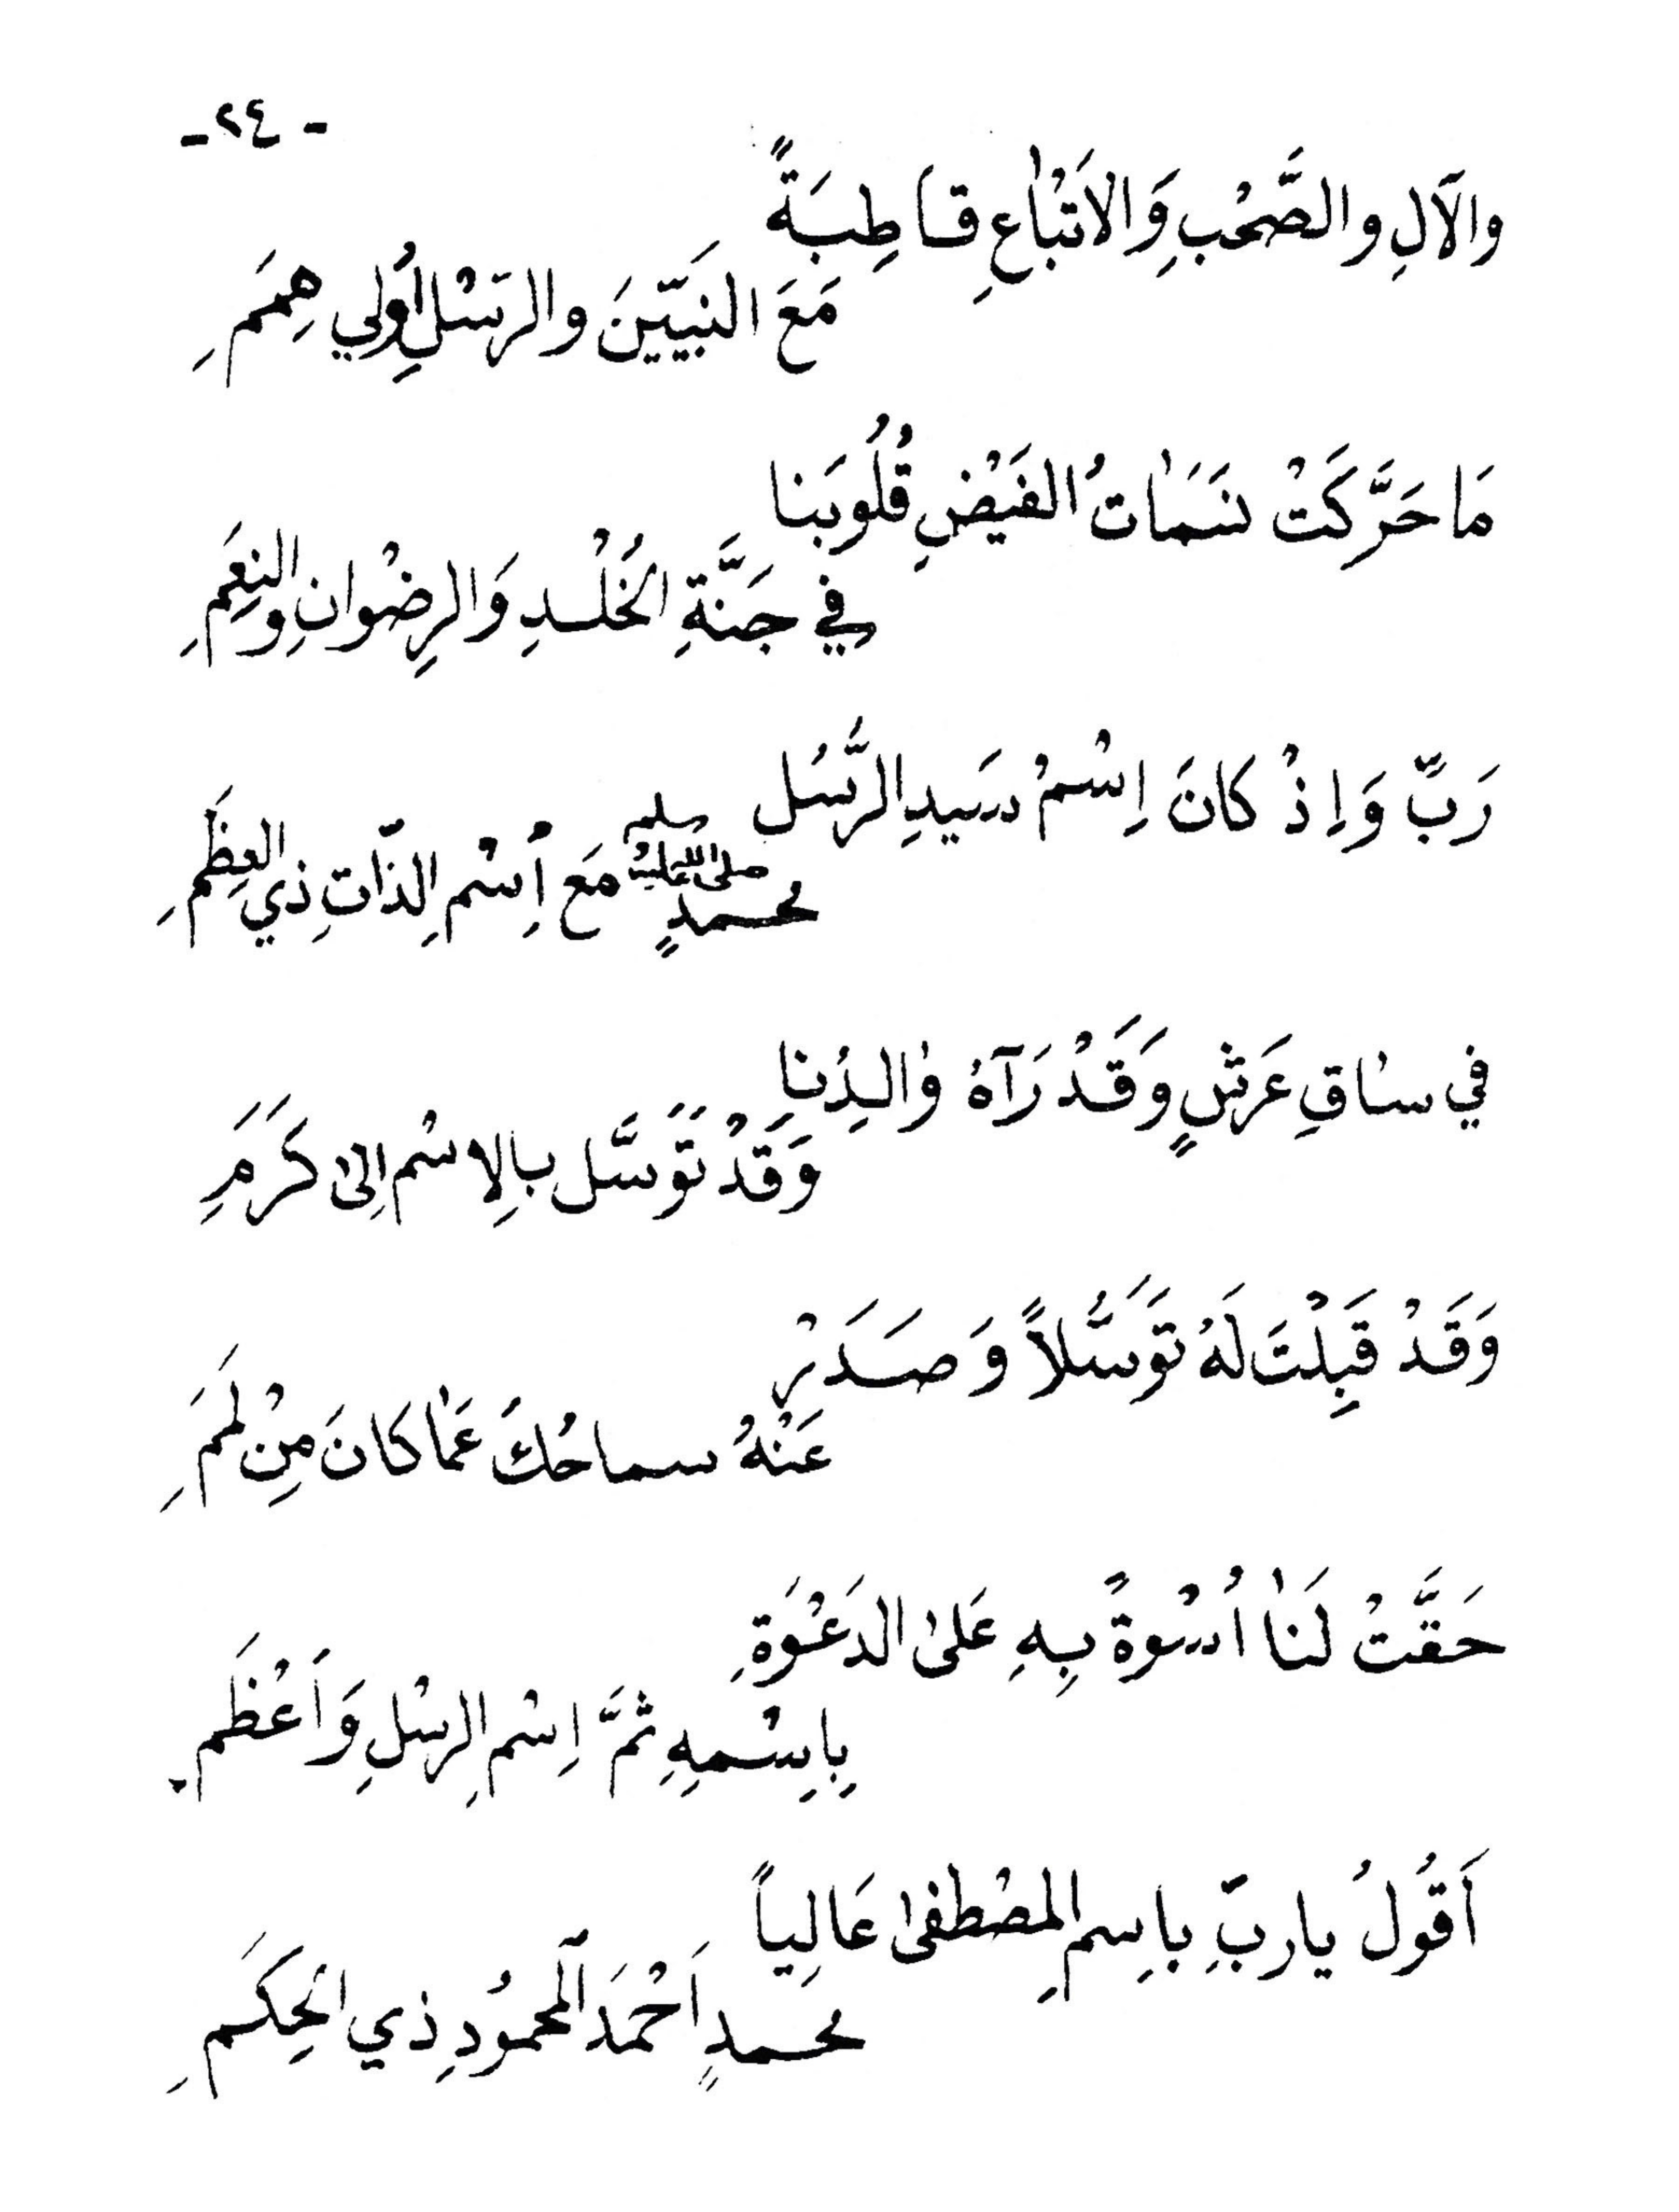 - ٢٤ -
والآلِ والصَّحْبِ وَالاَتْبٰاعِ قاطِبَةً
مَعَ النَبيّينَ والرسْلِ اُولِي هِمَمِ
مَا حَرَّكَتْ نسَمٰاتُ الفَيْضِ قُلُوبَنا
فِي جَنَّةِ الخُلْدِ وَالرِضْوانِ والنِعَمِ
رَبِّ وَاِذْ كانَ اِسْمُ سَيدِ الرُّسُل
محمدٍ صلى الله عليه وسلم مَع اِسْمِ الذّاتِ ذي العِظَمِ
في ساقِ عَرْشٍ وَقَدْ رَآهُ وٰالدِنا
وَقَدْ تَوَسَّل بالِاسْم اِلىٰ كَرَمِ
وَقَدْ قَبِلْتَ لَهُ تَوَسُّلاً وَصَدَرْ
عَنْهُ سماحُكَ عَمٰا كانَ مِنْ لَمَمِ
حَقَّتْ لَنٰا اُسْوةً بِهِ عَلىٰ الدَعْوَةِ
بِاِسْمهِ ثمَّ اِسْمِ الرسْلِ وَاَعْظَمِ
اَقوُلُ يا ربِّ باسِمِ المصْطفىٰ عَالِياً
محمدٍ اَحْمَدَ اَلمحموُدِ ذي الحِكَمِ